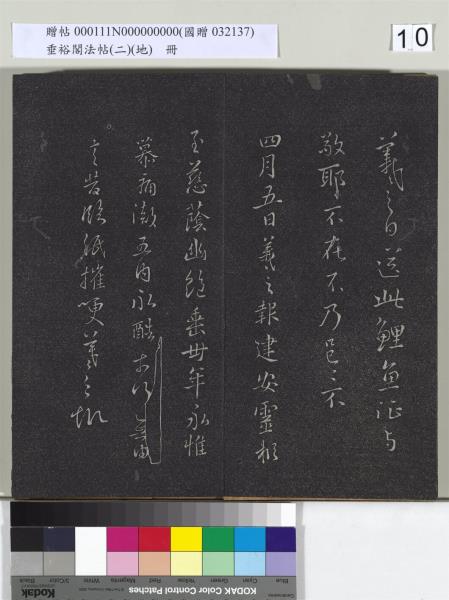 贈帖 000111N000000000(國贈 032137)
垂裕閣法帖(二)(地) 冊
10
羲之白送此鯉魚征与
敬耶不在不乃邑邑不
四月五日羲之報建安靈柩
至慈蔭幽絕垂卅年永惟
崇痛澈五內永酷奈何無由
言告臨紙摧哽羲之報
Kodak
Blue
Cyan
Green
Yellow
Red
Magenta
White
3/Color
Black
KODAK Color Control Patches